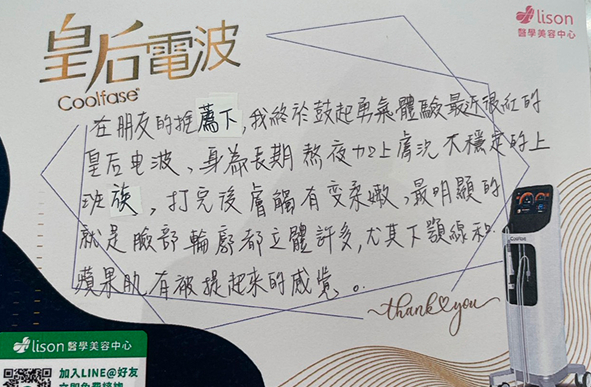 皇后電波
Coolfase®
lison
醫學美容中心
在朋友的推薦下,我終於鼓起勇氣體驗最近很紅的
皇后电波、身為長期熬夜加上膚況不穩定的上
班族,打完後膚觸有变柔嫩、最明顯的
就是臉部輪廓都立體許多,尤其下顎線和
蘋果肌有被提起來的感覺。
thank you
lison 醫學美容中心
加入LINE@好友